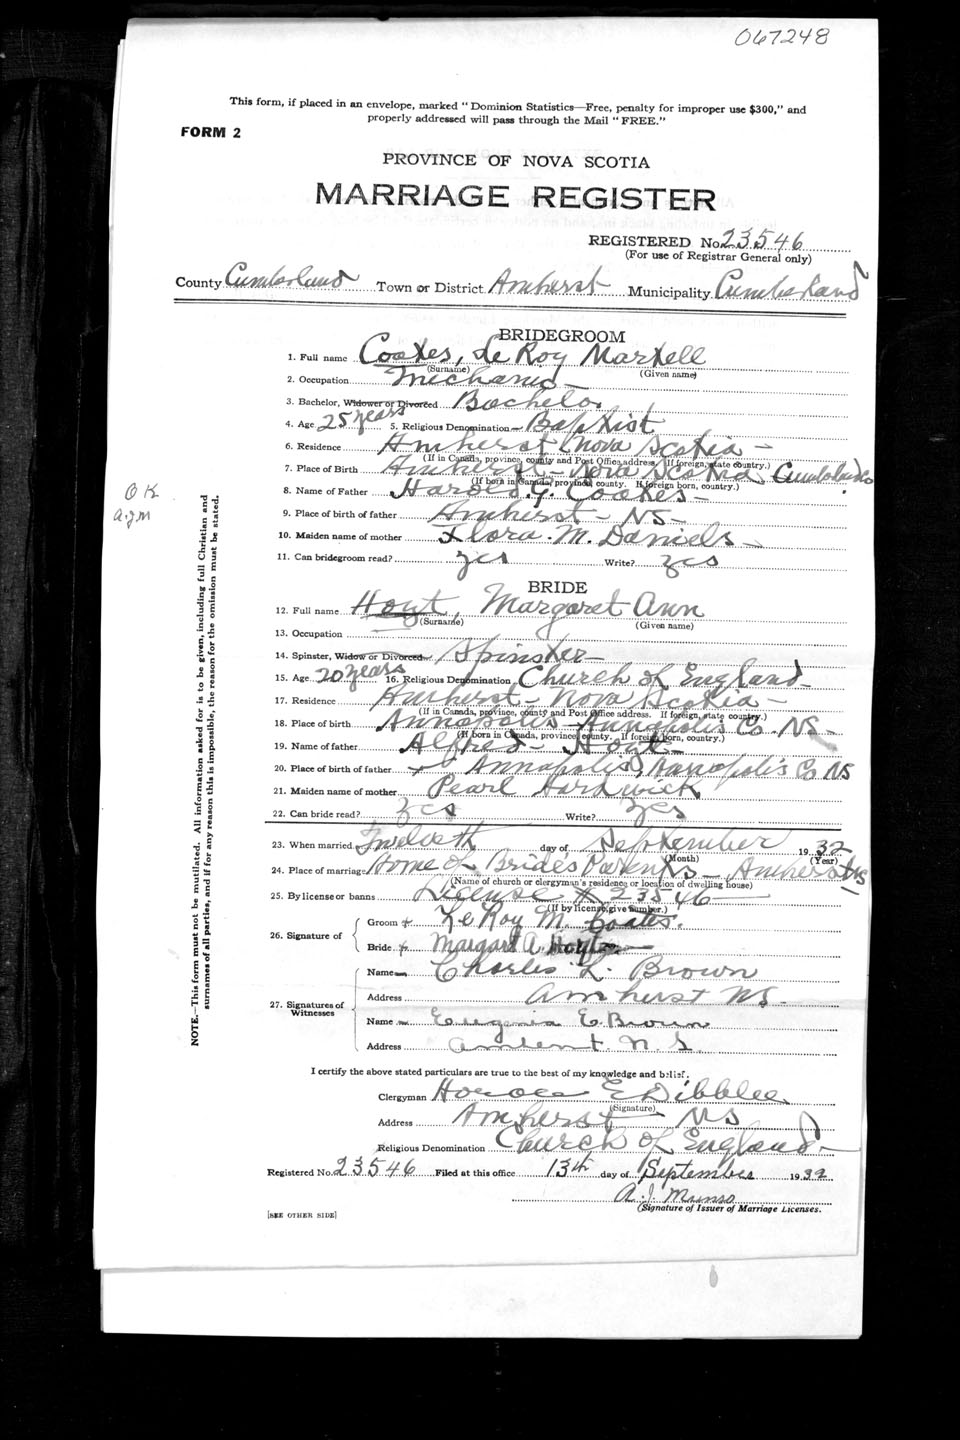 067248
This form, if placed in an envelope, marked "Dominion Statistics—Free, penalty for improper use $300," and
properly addressed will pass through the Mail "FREE."
FORM 2
PROVINCE OF NOVA SCOTIA
MARRIAGE REGISTER
REGISTERED No. 23546
(For use of Registrar General only)
County Cumberland Town or District Amherst Municipality Cumberland
BRIDEGROOM
1. Full name Coates, Le Roy Martell
(Surname) (Given name)
2. Occupation Mechanic
3. Bachelor, Widower or Divorced Bachelor
4. Age 25 years 5. Religious Denomination Baptist
6. Residence Amherst Nova Scotia
(If in Canada, province, county and Post Office address. If foreign, state country.)
7. Place of Birth Amherst Nova Scotia Cumberland Co
(If born in Canada, province, county. If foreign born, country.)
8. Name of Father Harold G. Coates
9. Place of birth of father Amherst NS
10. Maiden name of mother Flora M. Daniels
11. Can bridegroom read? yes Write? yes
BRIDE
12. Full name Hoyt, Margaret Ann
(Surname) (Given name)
13. Occupation
14. Spinster, Widow or Divorced Spinster
15. Age 20 years 16. Religious Denomination Church of England
17. Residence Amherst Nova Scotia
(If in Canada, province, county and Post Office address. If foreign, state country.)
18. Place of birth Annapolis Annapolis Co. NS
(If born in Canada, province, county. If foreign born, country.)
19. Name of father Alfred Hoyt
20. Place of birth of father Annapolis, Annapolis Co NS
21. Maiden name of mother Pearl Hardwick
22. Can bride read? yes Write? yes
23. When married Twelveth day of September 1932
(Month) (Year)
24. Place of marriage Home of Bride's Parents Amherst NS
(Name of church or clergyman's residence or location of dwelling house)
25. By license or banns License # 23546
(If by license, give number.)
26. Signature of
Groom LeRoy M. Coates.
Bride Margaret A. Hoyt
27. Signatures of Witnesses
Name Charles L. Brown
Address Amherst NS
Name Eugenia E. Brown
Address Amherst. N. S
I certify the above stated particulars are true to the best of my knowledge and belief.
Clergyman Horace E Dibblee
(Signature)
Address Amherst NS
Religious Denomination Church of England
Registered No. 23546 Filed at this office 13th day of September 1932
A. J. Munro
(Signature of Issuer of Marriage Licenses.
[SEE OTHER SIDE]
OK
a.j.m
NOTE.—This form must not be mutilated. All information asked for is to be given, including full Christian and
surnames of all parties, and if for any reason this is impossible, the reason for the omission must be stated.